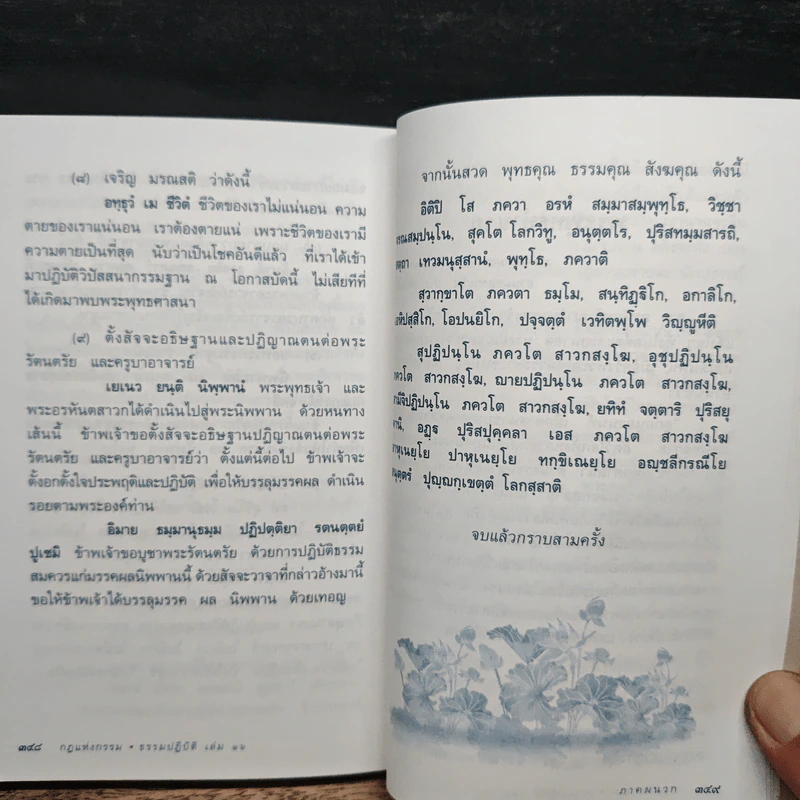 (๘) เจริญ มรณสติ ว่าดังนี้
อทฺธุวํ เม ชีวิตํ ชีวิตของเราไม่แน่นอน ความ
ตายของเราแน่นอน เราต้องตายแน่ เพราะชีวิตของเรามี
ความตายเป็นที่สุด นับว่าเป็นโชคอันดีแล้ว ที่เราได้เข้า
มาปฏิบัติวิปัสสนากรรมฐาน ณ โอกาสบัดนี้ ไม่เสียทีที่
ได้เกิดมาพบพระพุทธศาสนา
(๙) ตั้งสัจจะอธิษฐานและปฏิญาณตนต่อพระ
รัตนตรัย และครูบาอาจารย์
เยเนว ยนฺติ นิพฺพานํ พระพุทธเจ้า และ
พระอรหันตสาวกได้ดำเนินไปสู่พระนิพพาน ด้วยหนทาง
เส้นนี้ ข้าพเจ้าขอตั้งสัจจะอธิษฐานปฏิญาณตนต่อพระ
รัตนตรัย และครูบาอาจารย์ว่า ตั้งแต่นี้ต่อไป ข้าพเจ้าจะ
ตั้งอกตั้งใจประพฤติและปฏิบัติ เพื่อให้บรรลุมรรคผล ดำเนิน
รอยตามพระองค์ท่าน
อิมาย ธมฺมานุธมฺม ปฏิปตฺติยา รตนตฺตยํ
ปูเชมิ ข้าพเจ้าขอบูชาพระรัตนตรัย ด้วยการปฏิบัติธรรม
สมควรแก่มรรคผลนิพพานนี้ ด้วยสัจจะวาจาที่กล่าวอ้างมานี้
ขอให้ข้าพเจ้าได้บรรลุมรรค ผล นิพพาน ด้วยเทอญ
๓๔๘ กฎแห่งกรรม • ธรรมปฏิบัติ เล่ม ๑๖
จากนั้นสวด พุทธคุณ ธรรมคุณ สังฆคุณ ดังนี้
อิติปิ โส ภควา อรหํ สมฺมาสมฺพุทฺโธ, วิชฺชา
จรณสมฺปนฺโน, สุคโต โลกวิทู, อนุตฺตโร, ปุริสทมฺมสารถิ,
สตฺถา เทวมนุสฺสานํ, พุทฺโธ, ภควาติ
สฺวากฺขาโต ภควตา ธมฺโม, สนฺทิฏฺฐิโก, อกาลิโก,
เอหิปสฺสิโก, โอปนยิโก, ปจฺจตฺตํ เวทิตพฺโพ วิญฺญูหีติ
สุปฏิปนฺโน ภควโต สาวกสงฺโฆ, อุชุปฏิปนฺโน
ภควโต สาวกสงฺโฆ, ญายปฏิปนฺโน ภควโต สาวกสงฺโฆ,
สามีจิปฏิปนฺโน ภควโต สาวกสงฺโฆ, ยทิทํ จตฺตาริ ปุริสยุ
คานิ, อฏฺฐ ปุริสปุคฺคลา เอส ภควโต สาวกสงฺโฆ
อาหุเนยฺโย ปาหุเนยฺโย ทกฺขิเณยฺโย อญฺชลีกรณีโย
อนุตฺตรํ ปุญฺญกฺเขตฺตํ โลกสฺสาติ
จบแล้วกราบสามครั้ง
ภาคผนวก ๓๔๙